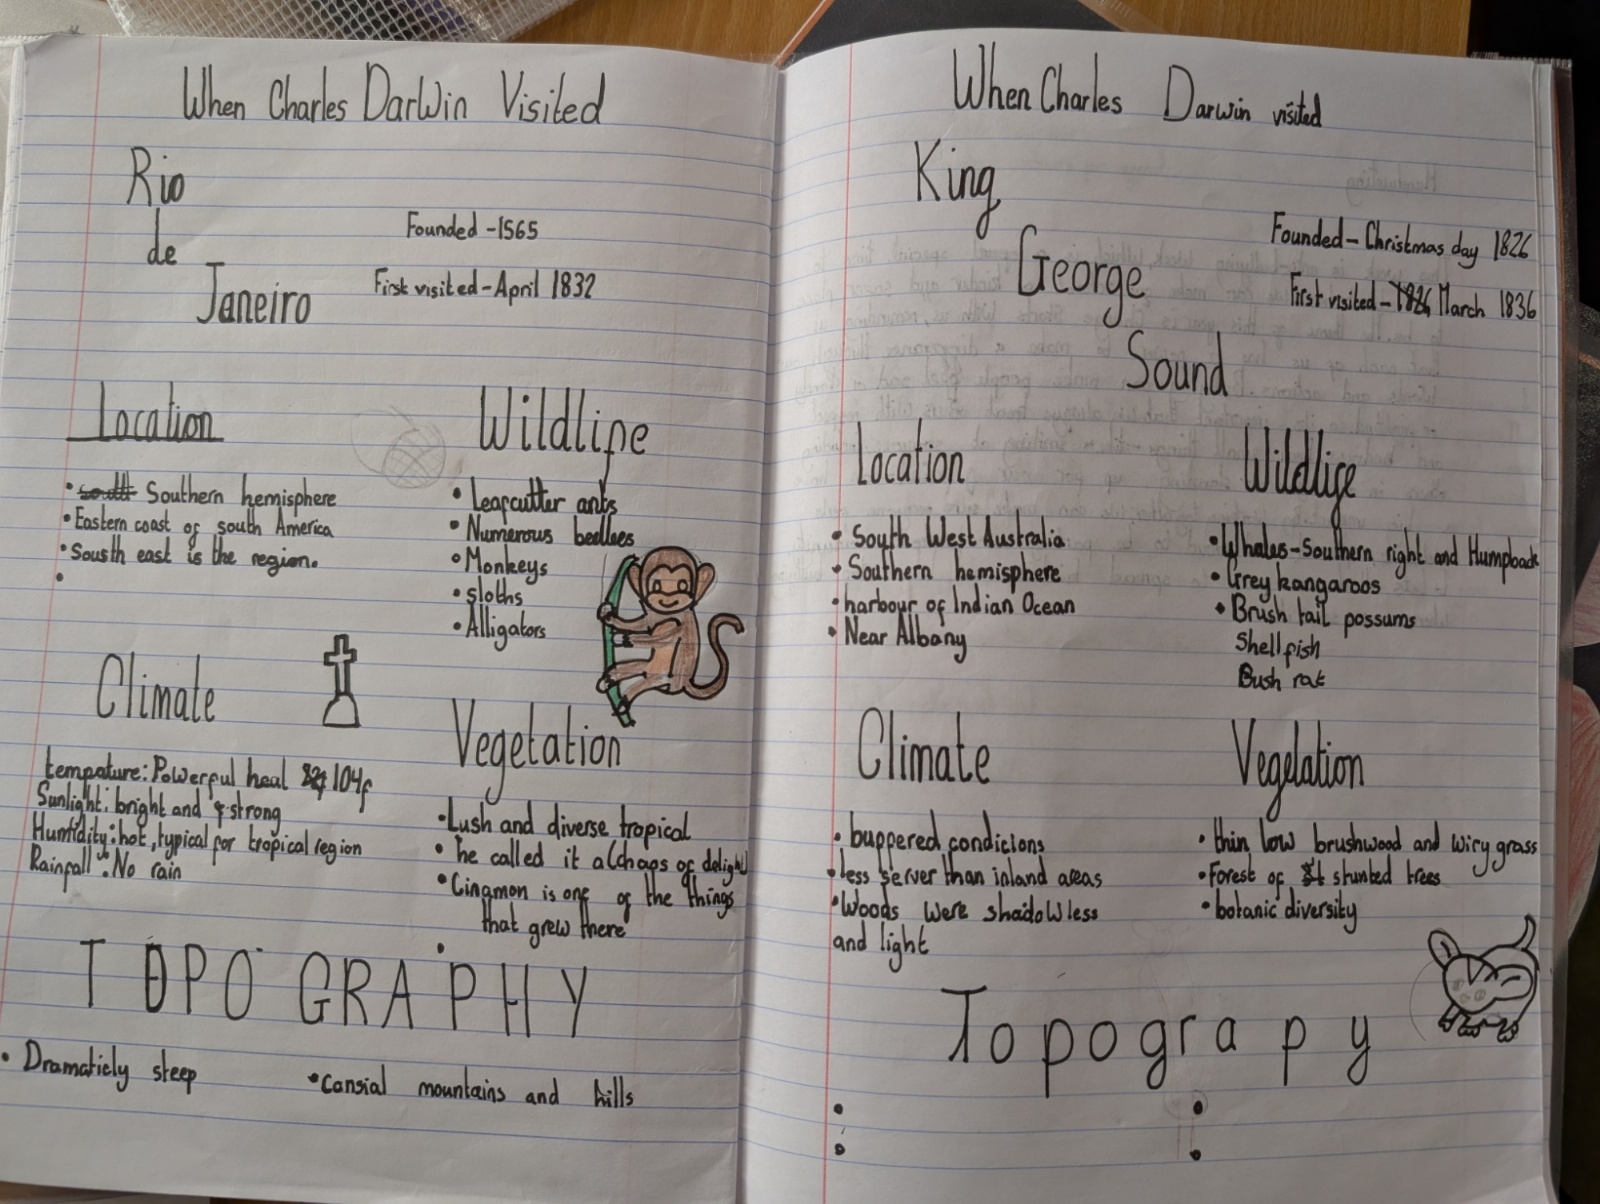 When Charles Darwin Visited
Rio
de
Janeiro
Founded -1565
First visited - April 1832
Location
• Southern hemisphere
• Eastern coast of south America
• Sousth east is the region.
•
Wildlife
• Leafcutter ants
• Numerous beetlees
• Monkeys
• sloths
• Alligators
Climate
tempature: Powerful heat 104f
Sunlight: bright and strong
Humfidity: hot, typical for tropical region
Rainfall: No rain
Vegetation
• Lush and diverse tropical
• he called it a (chaos of delight)
• Cinamon is one of the things
that grew there
•
TOPOGRAPHY
• Dramaticly steep
• Cansial mountains and hills
When Charles Darwin visited
King
George
Sound
Founded - Christmas day 1826
First visited - 1826 March 1836
Location
• South West Australia
• Southern hemisphere
• harbour of Indian Ocean
• Near Albany
Wildlife
• Whales - Southern right and Humpback
• Grey kangaroos
• Brush tail possums
Shellfish
Bush rat
Climate
• buffered condicions
• less server than inland areas
• Woods were shadowless
and light
Vegetation
• thin low brushwood and wiry grass
• Forest of stunted trees
• botanic diversity
Topograpy